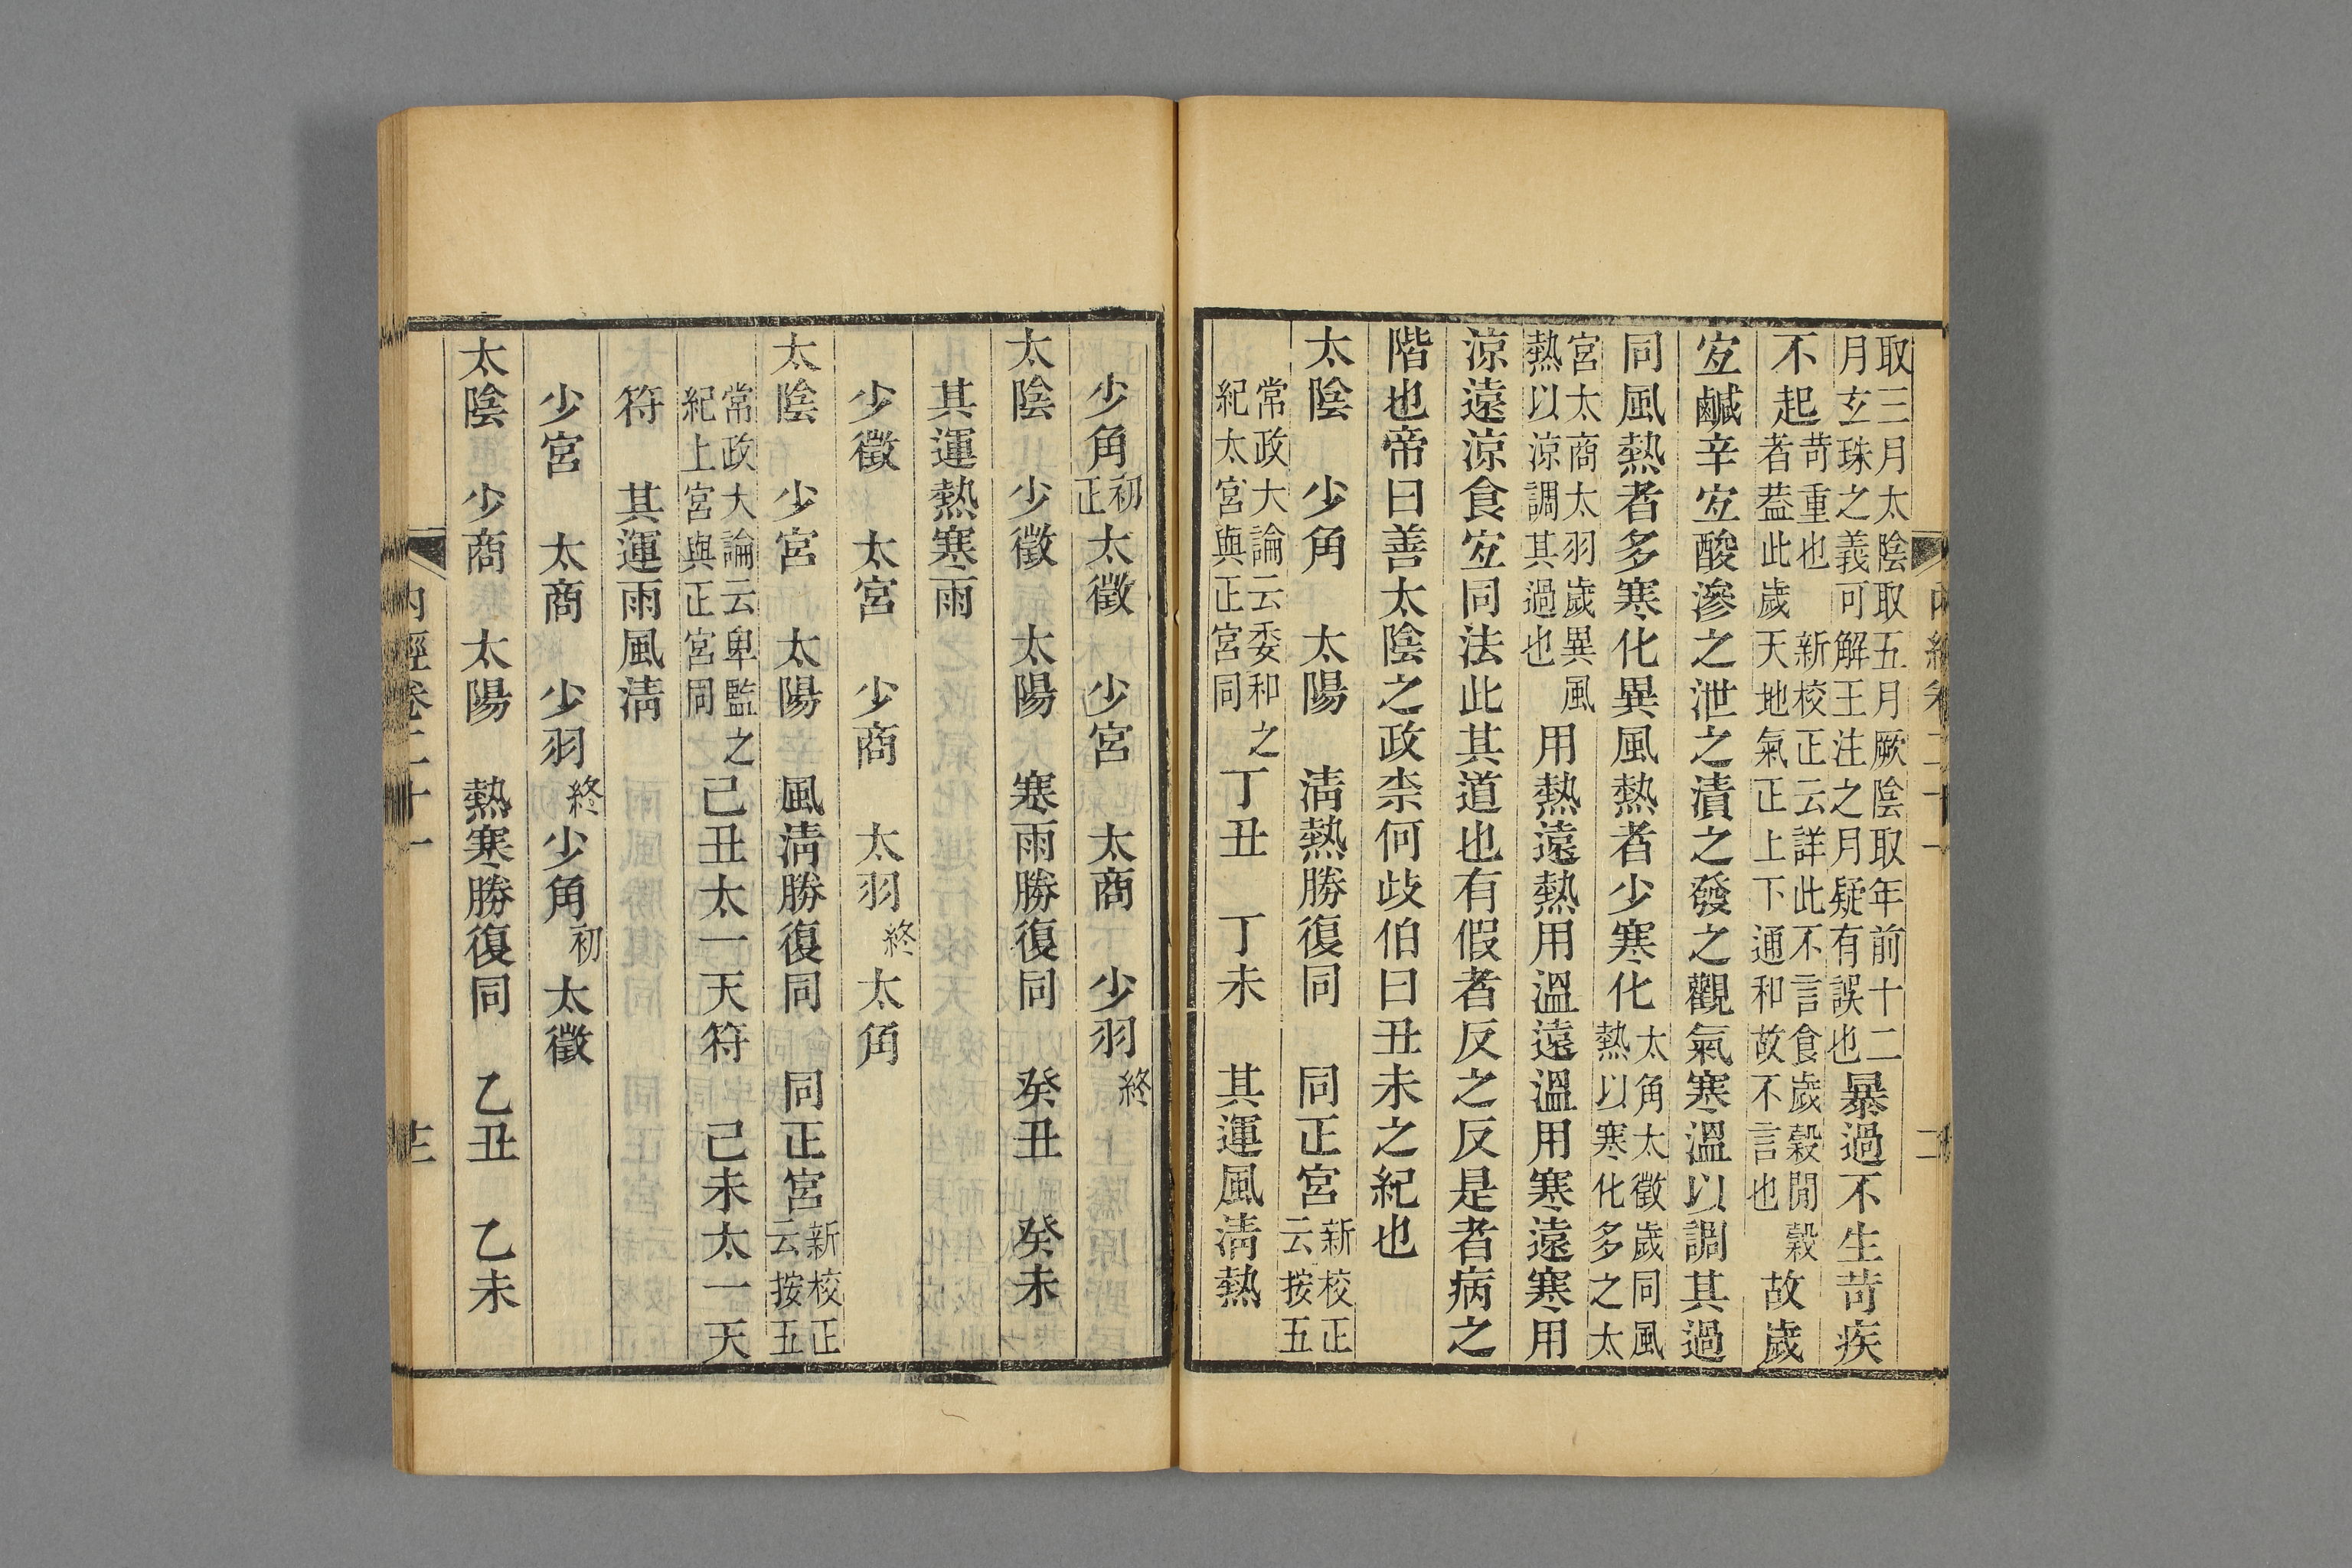 取三月太陰取五月厥陰取年前十二月玄珠之義可解王注之月疑有誤也暴過不生苛疾
不起苛重也　新校正云詳此不言食歲穀閒穀者葢此歲天地氣正上下通和故不言也故歲
宐鹹辛宐酸滲之泄之漬之發之觀氣寒溫以調其過
同風熱者多寒化異風熱者少寒化太角太徵歲同風熱以寒化多之太
宮太商太羽歲異風熱以涼調其過也用熱遠熱用溫遠溫用寒遠寒用
涼遠涼食宐同法此其道也有假者反之反是者病之
階也帝曰善太陰之政柰何歧伯曰丑未之紀也
太陰　少角　太陽　淸熱勝復同　同正宮新校正云按五
常政大論云委和之紀太宮與正宮同丁丑　丁未　其運風淸熱
少角初正太徵　少宮　太商　少羽終
太陰　少徵　太陽　寒雨勝復同　癸丑　癸未
其運熱寒雨
少徵　太宮　少商　太羽終太角
太陰　少宮　太陽　風淸勝復同　同正宮新校正云按五
常政大論云卑監之紀上宮與正宮同己丑太一天符　己未太一天
符　其運雨風淸
少宮　太商　少羽終少角初太徵
太陰　少商　太陽　熱寒勝復同　乙丑　乙未
內經卷二十一